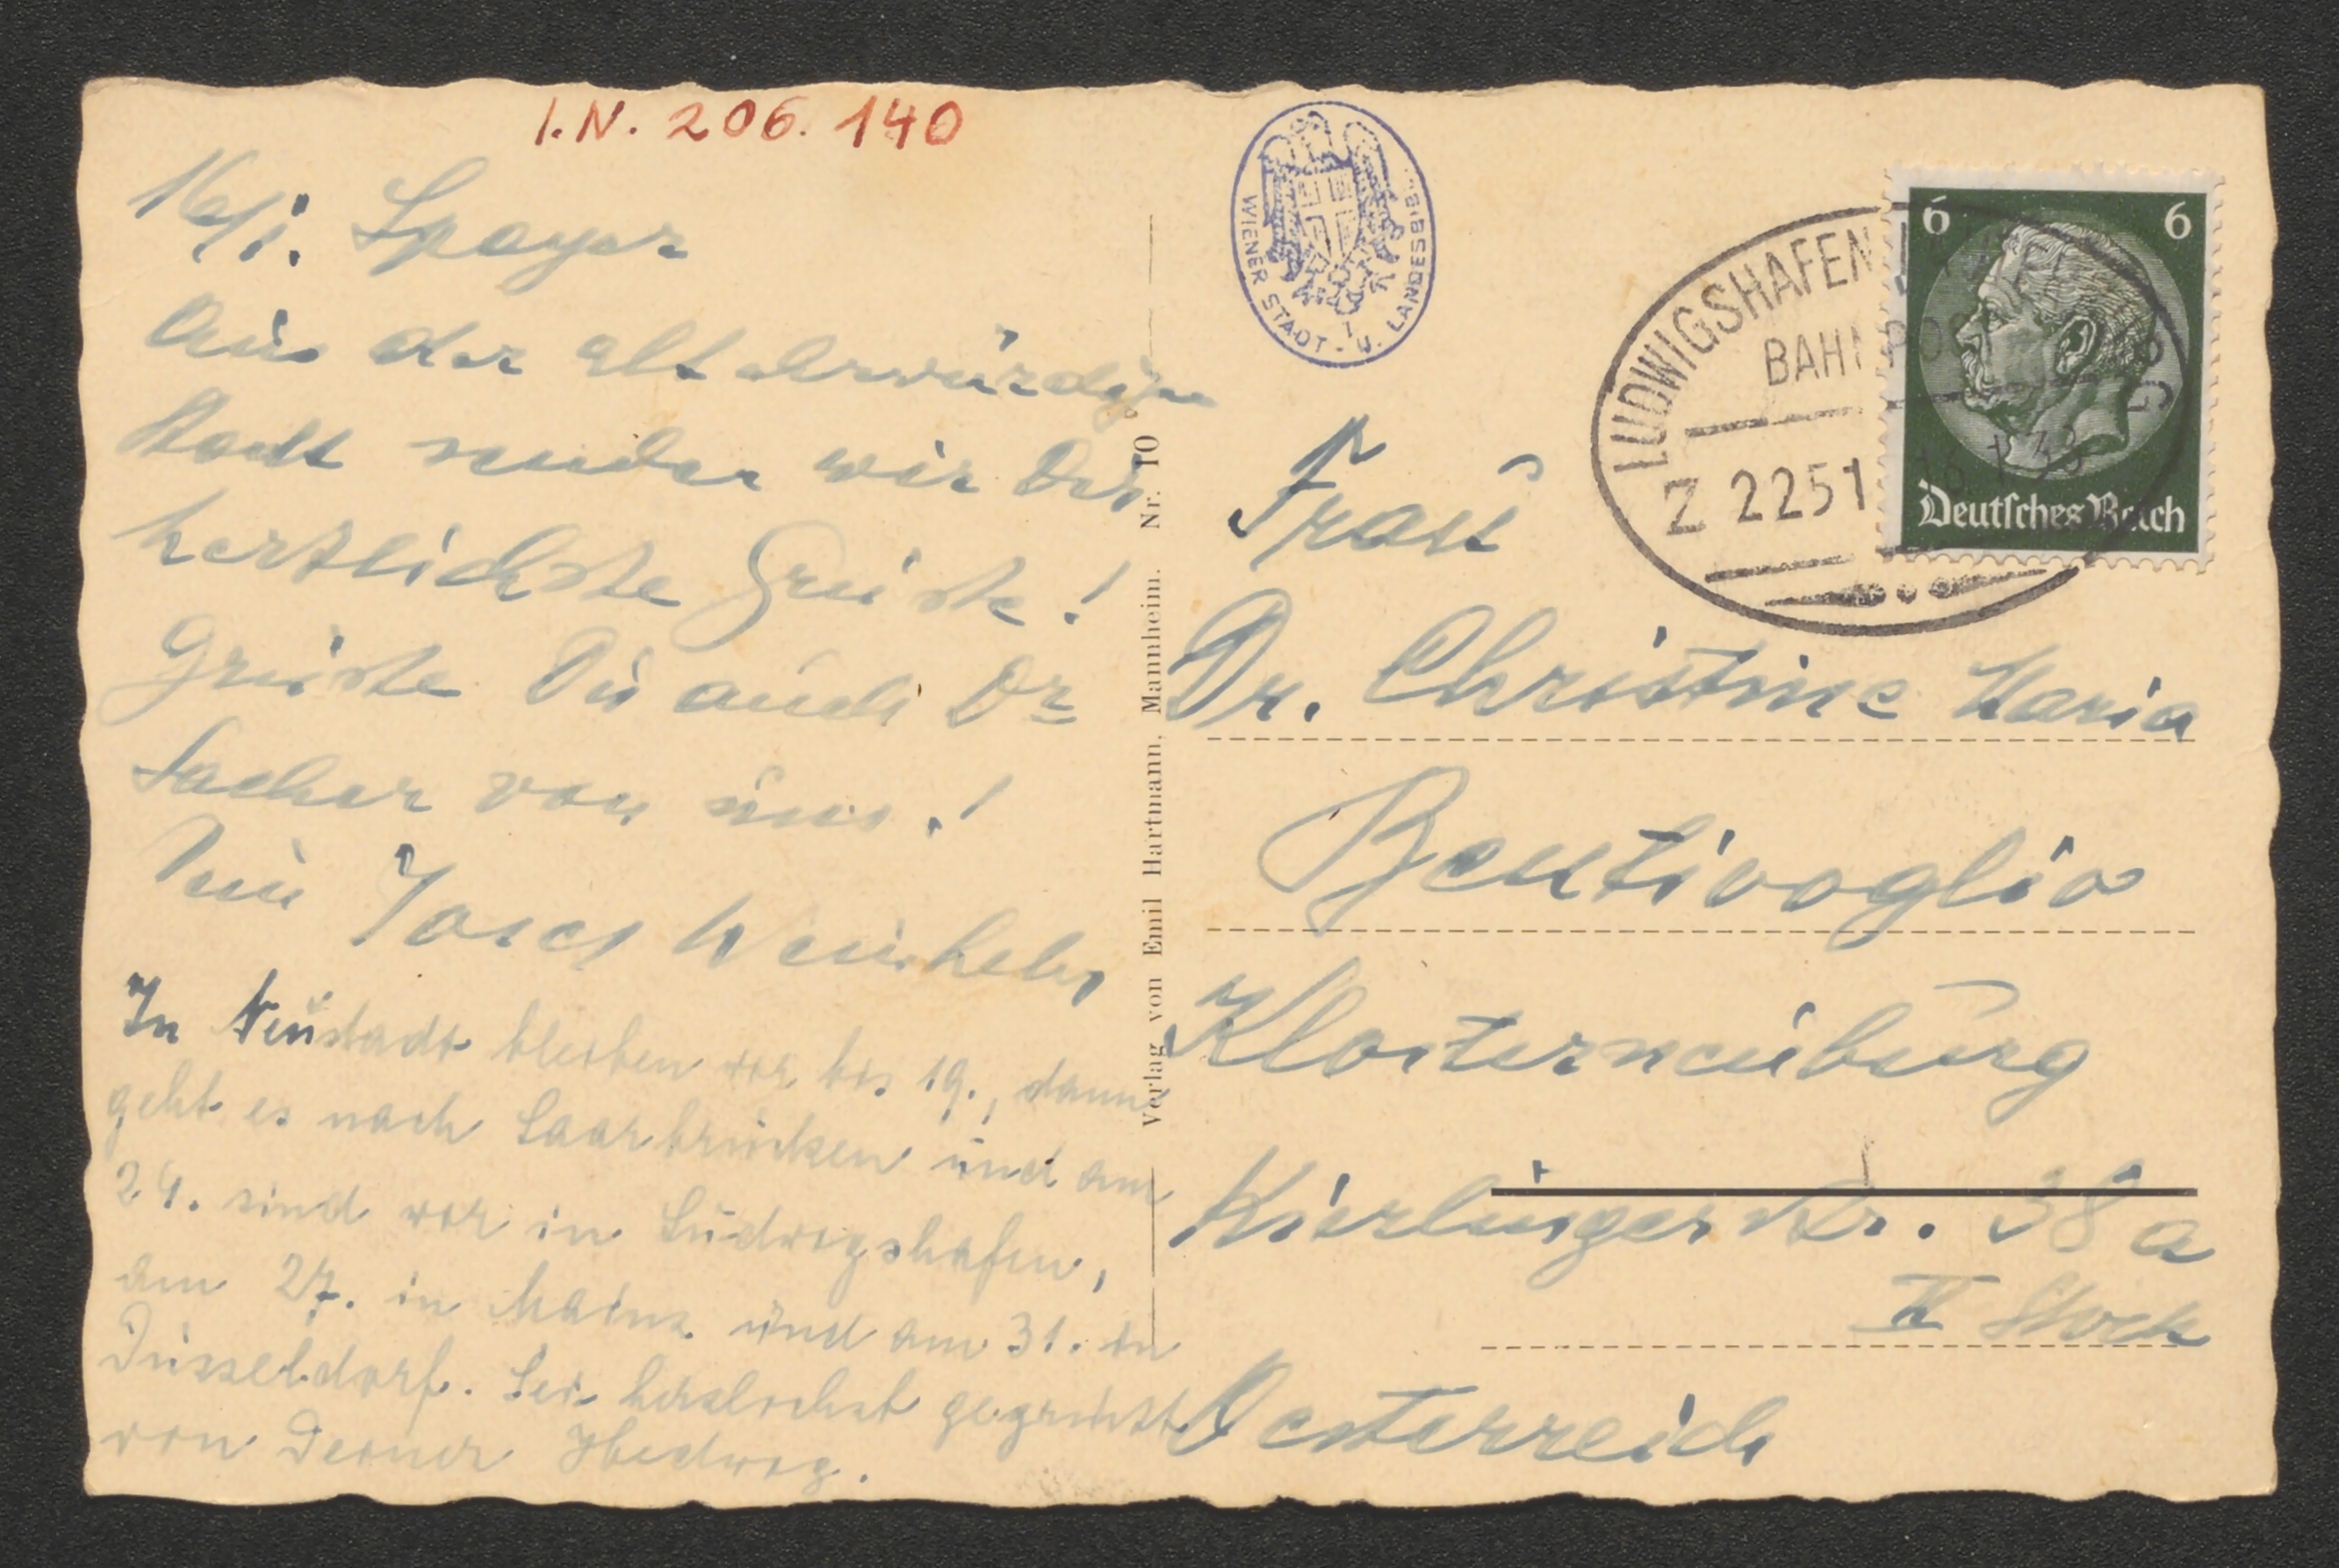 I.N. 206.140
16/1. Speyer
Aus der altehrwürdigen
Stadt senden wir Dir
herzlichste Grüsse!
Grüsse Du auch Dr
Sacher von uns!
Dein Josef Weinheber
In Neustadt bleiben wir bis 19., dann
geht es nach Saarbrücken und am
24. sind wir in Ludwigshafen,
am 27. in Mainz und am 31. in
Düsseldorf. Sei herzlichst gegrüsst
von Deiner Hedwig.
Verlag von Emil Hartmann, Mannheim. Nr. 10
WIENER STADT- U. LANDESBIBL.
LUDWIGSHAFEN
BAHNPOST
Z 2251
16 1 38
6 6
Deutsches Reich
Frau
Dr. Christine Maria
Bentivoglio
Klosterneuburg
Kierlingerstr. 38a
II Stock
Oesterreich